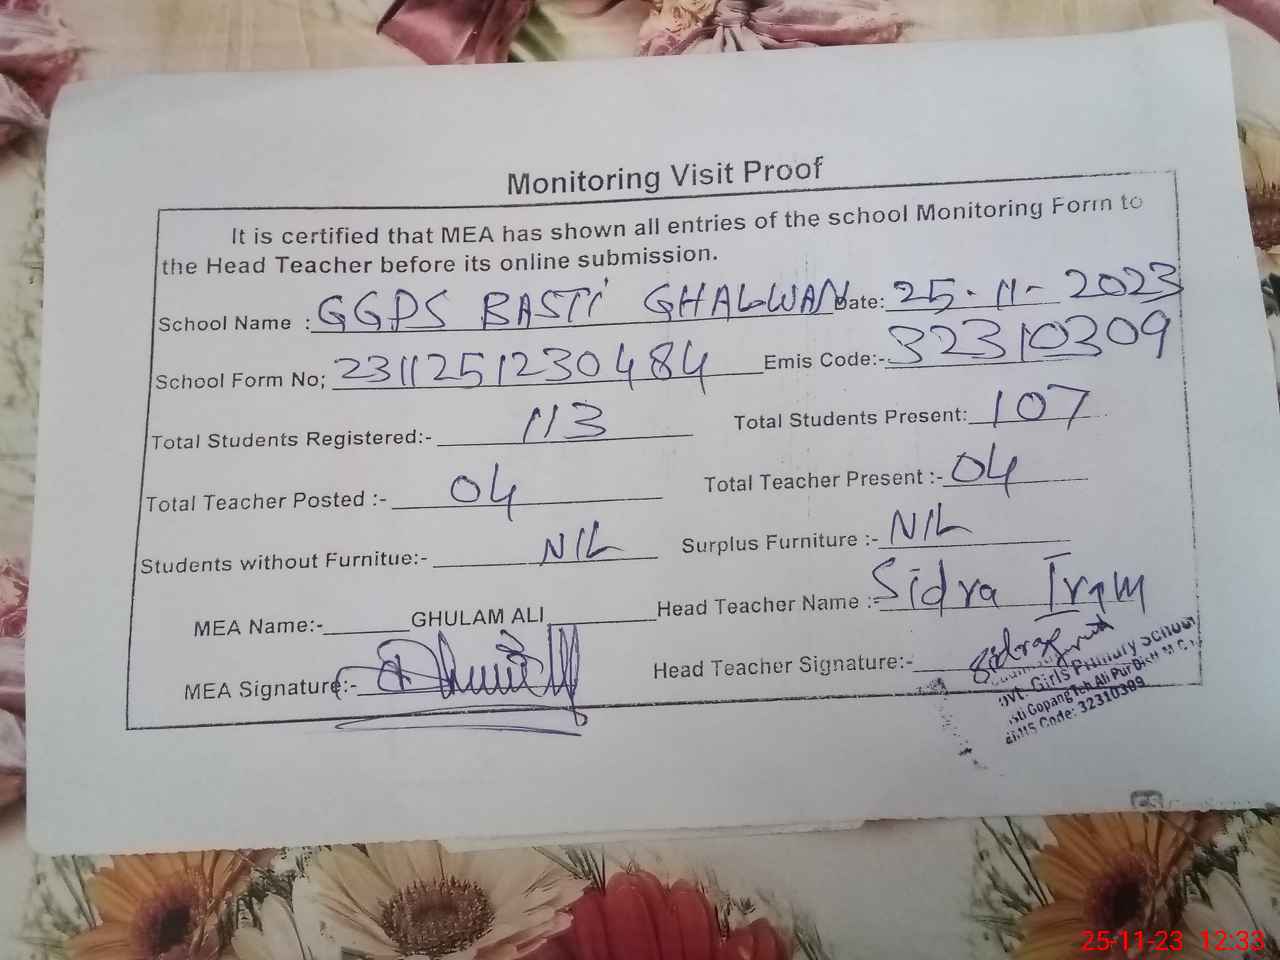 Monitoring Visit Proof
It is certified that MEA has shown all entries of the school Monitoring Form to
the Head Teacher before its online submission.
School Name : GGPS BASTI GHALWAN Date: 25-11-2023
School Form No; 2311251230484 Emis Code:- 32310309
Total Students Registered:- 113 Total Students Present: 107
Total Teacher Posted :- 04 Total Teacher Present :- 04
Students without Furnitue:- NIL Surplus Furniture :- NIL
MEA Name:- GHULAM ALI Head Teacher Name :- Sidra Iram
MEA Signature:- Head Teacher Signature:-
Girls Primary School
Gopang Teh Ali Pur Distt M
Code: 32310309
CS
25-11-23 12:33